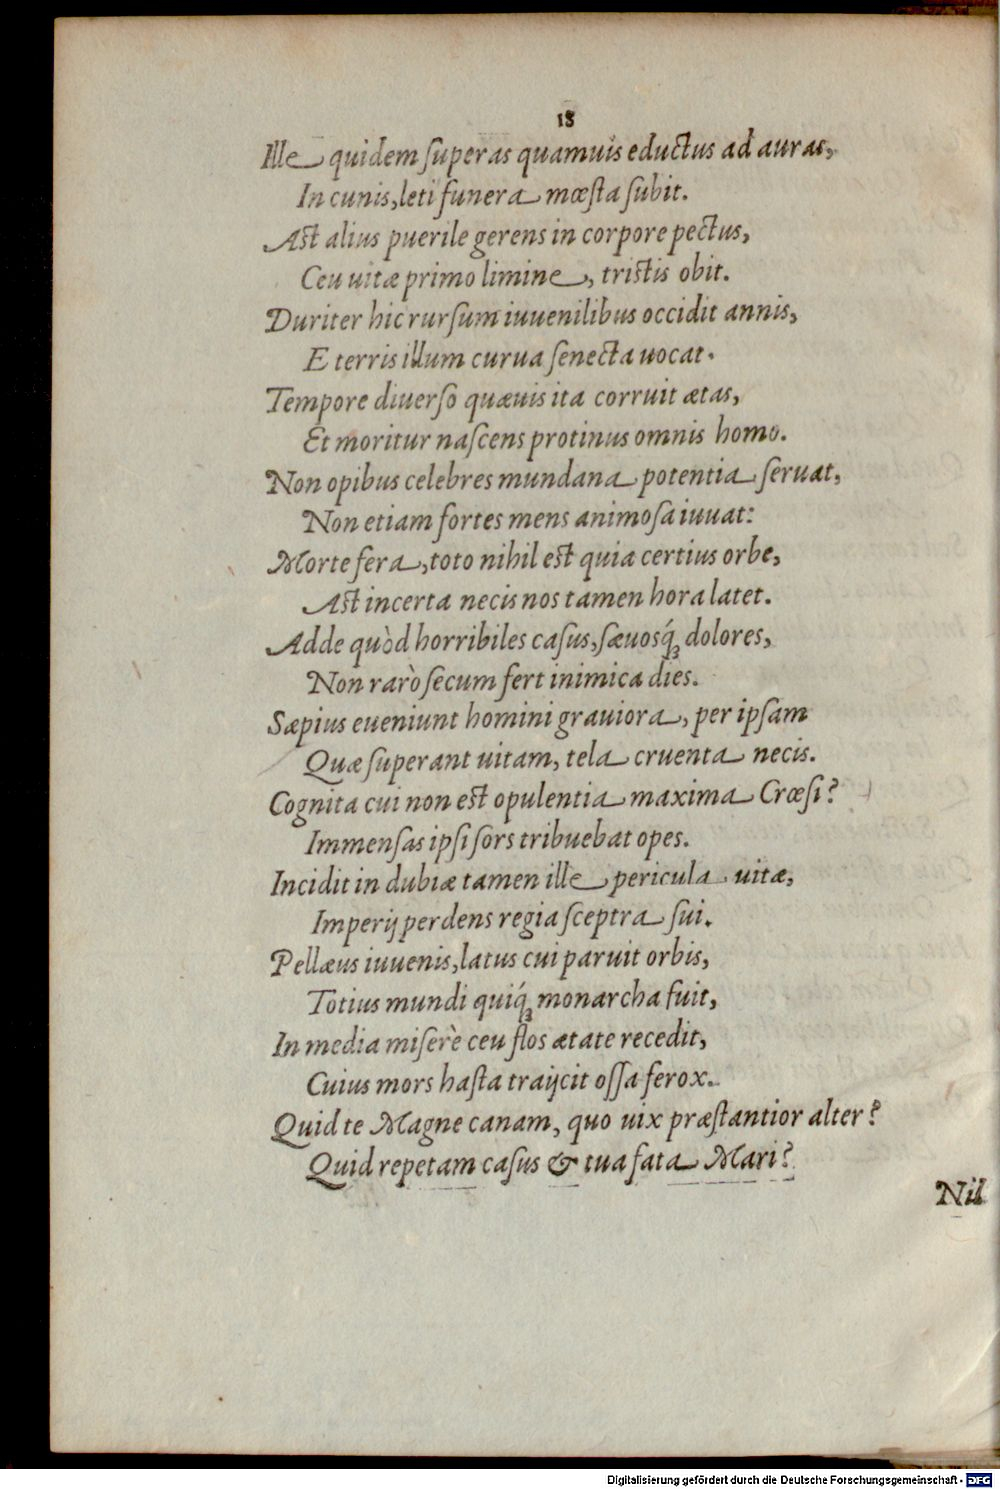 18
Ille quidem superas quamuis eductus ad auras,
In cunis, leti funera mœsta subit.
Ast alius puerile gerens in corpore pectus,
Ceu uitæ primo limine, tristis obit.
Duriter hic rursum iuuenilibus occidit annis,
E terris illum curua senecta uocat.
Tempore diuerso quæuis ita corruit ætas,
Et moritur nascens protinus omnis homo.
Non opibus celebres mundana potentia seruat,
Non etiam fortes mens animosa iuuat:
Morte fera, toto nihil est quia certius orbe,
Ast incerta necis nos tamen hora latet.
Adde quòd horribiles casus, sæuosq́ꝫ dolores,
Non rarò secum fert inimica dies.
Sæpius eueniunt homini grauiora, per ipsam
Quæ superant uitam, tela cruenta necis.
Cognita cui non est opulentia maxima Crœsi?
Immensas ipsi sors tribuebat opes.
Incidit in dubiæ tamen ille pericula uitæ,
Imperij perdens regia sceptra sui.
Pellæus iuuenis, latus cui paruit orbis,
Totius mundi quiq́ꝫ monarcha fuit,
In media miserè ceu flos ætate recedit,
Cuius mors hasta traijcit ossa ferox.
Quid te Magne canam, quo uix præstantior alter?
Quid repetam casus & tua fata Mari?
Nil
Digitalisierung gefördert durch die Deutsche Forschungsgemeinschaft - DFG